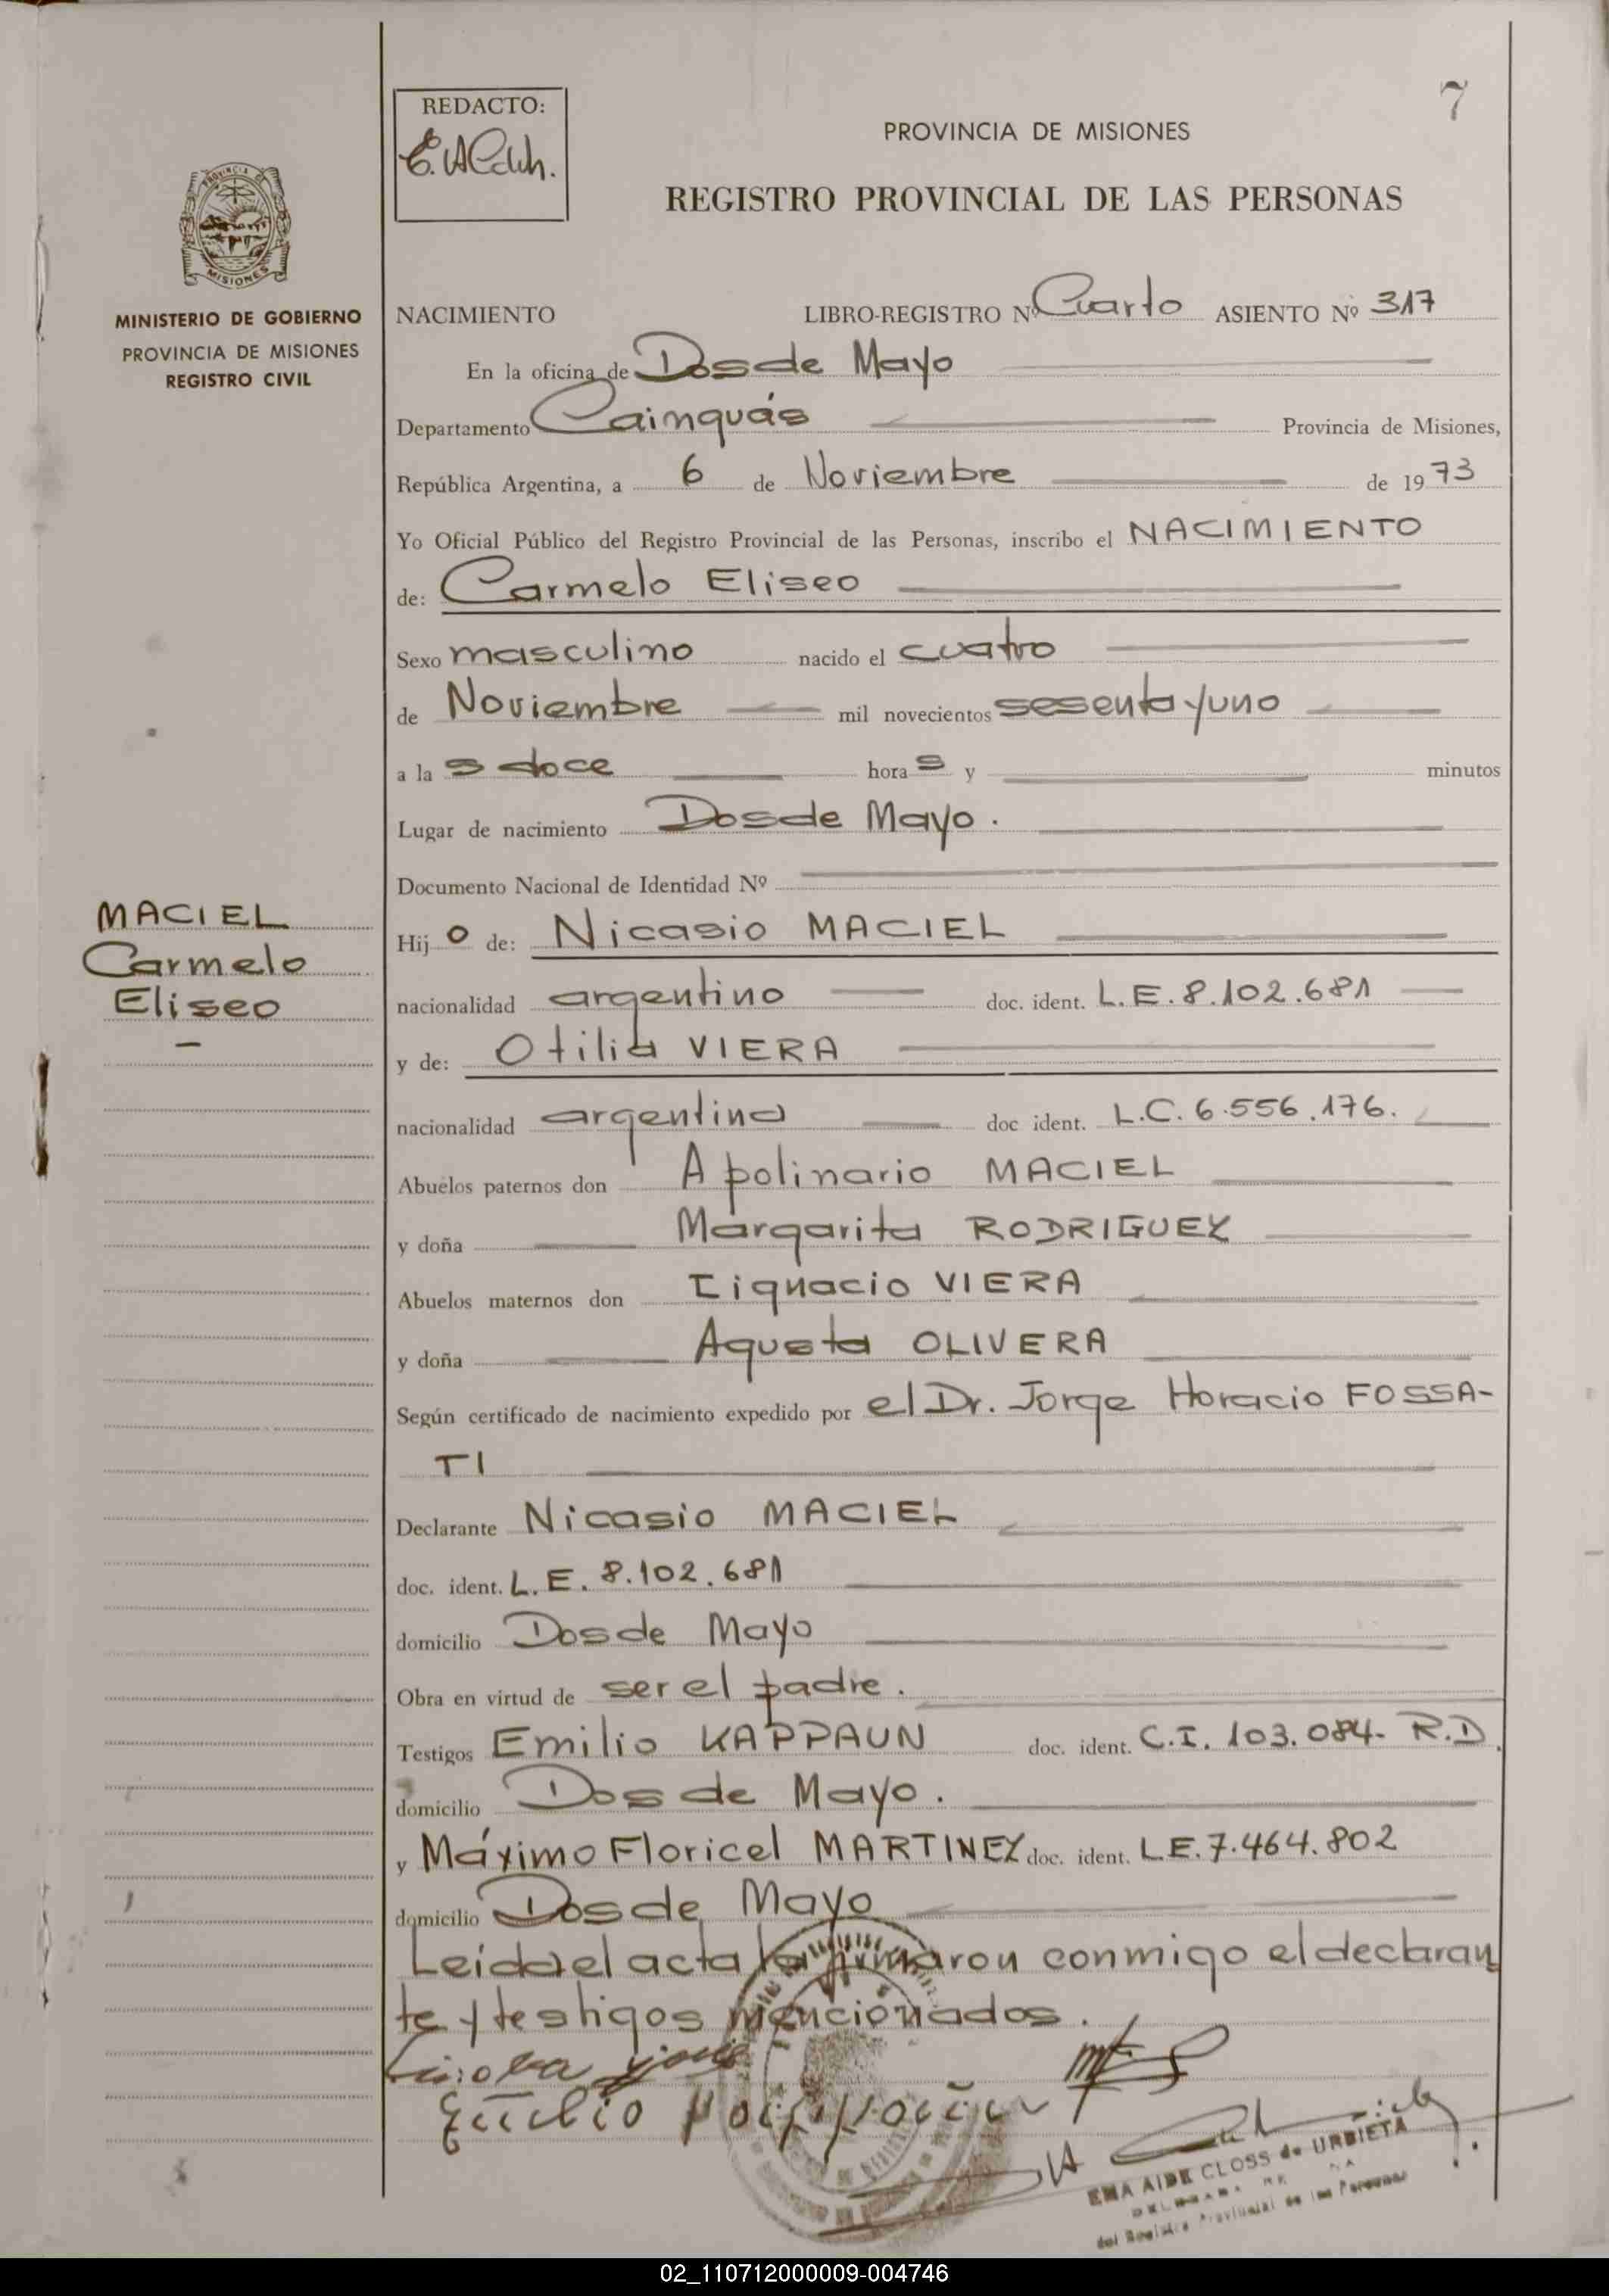 7
REDACTO:
PROVINCIA DE MISIONES
REGISTRO PROVINCIAL DE LAS PERSONAS
PROVINCIA DE
MISIONES
MINISTERIO DE GOBIERNO
PROVINCIA DE MISIONES
REGISTRO CIVIL
NACIMIENTO LIBRO-REGISTRO Nº Cuarto ASIENTO Nº 317
En la oficina de Dos de Mayo
Departamento Cainguás Provincia de Misiones,
República Argentina, a 6 de Noviembre de 1973
Yo Oficial Público del Registro Provincial de las Personas, inscribo el NACIMIENTO
de: Carmelo Eliseo
Sexo masculino nacido el cuatro
de Noviembre mil novecientos sesenta y uno
a las doce horas y minutos
Lugar de nacimiento Dos de Mayo.
Documento Nacional de Identidad Nº
MACIEL
Carmelo
Eliseo
Hijo de: Nicasio MACIEL
nacionalidad argentino doc. ident. L.E. 8.102.681
y de: Otilia VIERA
nacionalidad argentina doc ident. L.C. 6.556.176.
Abuelos paternos don Apolinario MACIEL
y doña Margarita RODRIGUEZ
Abuelos maternos don Iignacio VIERA
y doña Agusta OLIVERA
Según certificado de nacimiento expedido por el Dr. Jorge Horacio FOSSA-
TI
Declarante Nicasio MACIEL
doc. ident. L.E. 8.102.681
domicilio Dos de Mayo
Obra en virtud de ser el padre.
Testigos Emilio KAPPAUN doc. ident. C.I. 103.084- R.D.
domicilio Dos de Mayo.
y Máximo Floricel MARTINEZ doc. ident. L.E. 7.464.802
domicilio Dos de Mayo
Leida el acta la firmaron conmigo el declaran
te y testigos mencionados.
EMA AIDE CLOSS de URBIETA
del Registro Provincial de las Personas
02_110712000009-004746